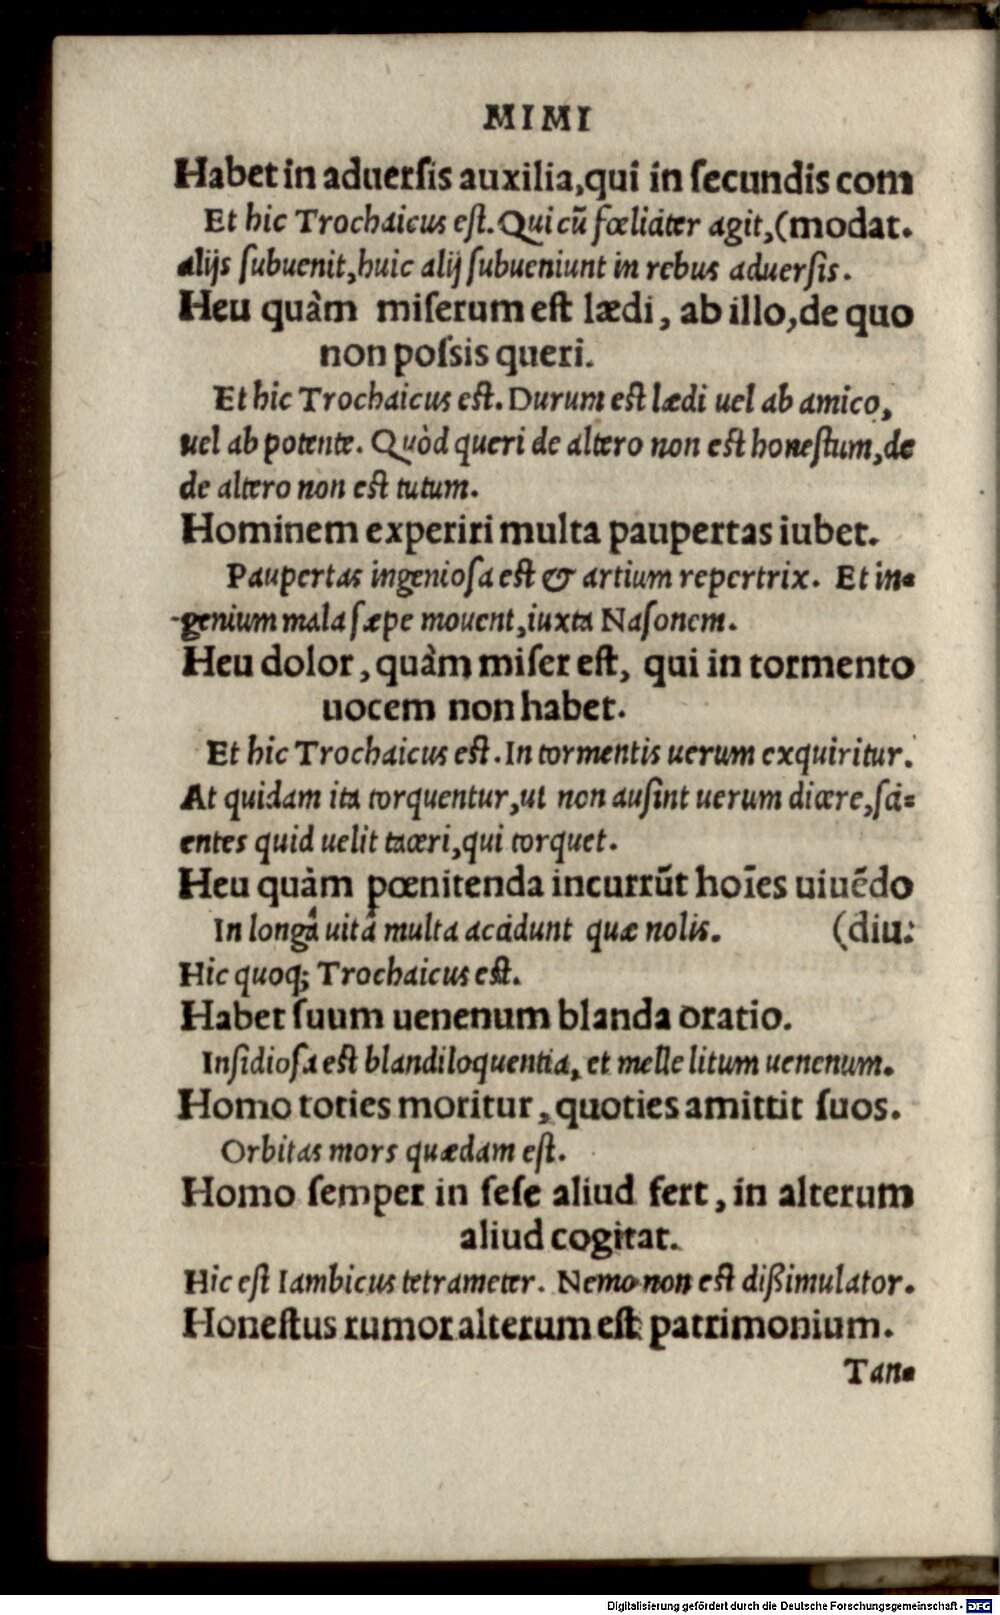 MIMI
Habet in aduerſis auxilia, qui in ſecundis com
Et hic Trochaicus eſt. Qui cũ fœliciter agit, (modat.
alijs ſubuenit, huic alij ſubueniunt in rebus aduerſis.
Heu quàm miſerum eſt lædi, ab illo, de quo
non poſsis queri.
Et hic Trochaicus eſt. Durum eſt lædi uel ab amico,
uel ab potente. Quòd queri de altero non eſt honeſtum, de
de altero non eſt tutum.
Hominem experiri multa paupertas iubet.
Paupertas ingenioſa eſt & artium repertrix. Et in-
genium mala ſæpe mouent, iuxta Naſonem.
Heu dolor, quàm miſer eſt, qui in tormento
uocem non habet.
Et hic Trochaicus eſt. In tormentis uerum exquiritur.
At quidam ita torquentur, ut non auſint uerum dicere, ſci=
entes quid uelit taceri, qui torquet.
Heu quàm pœnitenda incurrũt hoĩes uiuẽdo
In longâ uitâ multa accidunt quæ nolis. (diu:
Hic quoq; Trochaicus eſt.
Habet ſuum uenenum blanda oratio.
Inſidioſa eſt blandiloquentia, et melle litum uenenum.
Homo toties moritur, quoties amittit ſuos.
Orbitas mors quædam eſt.
Homo ſemper in ſeſe aliud fert, in alterum
aliud cogitat.
Hic eſt Iambicus tetrameter. Nemo non eſt dißimulator.
Honeſtus rumor alterum eſt patrimonium.
Tan-
Digitalisierung gefördert durch die Deutsche Forschungsgemeinschaft - DFG